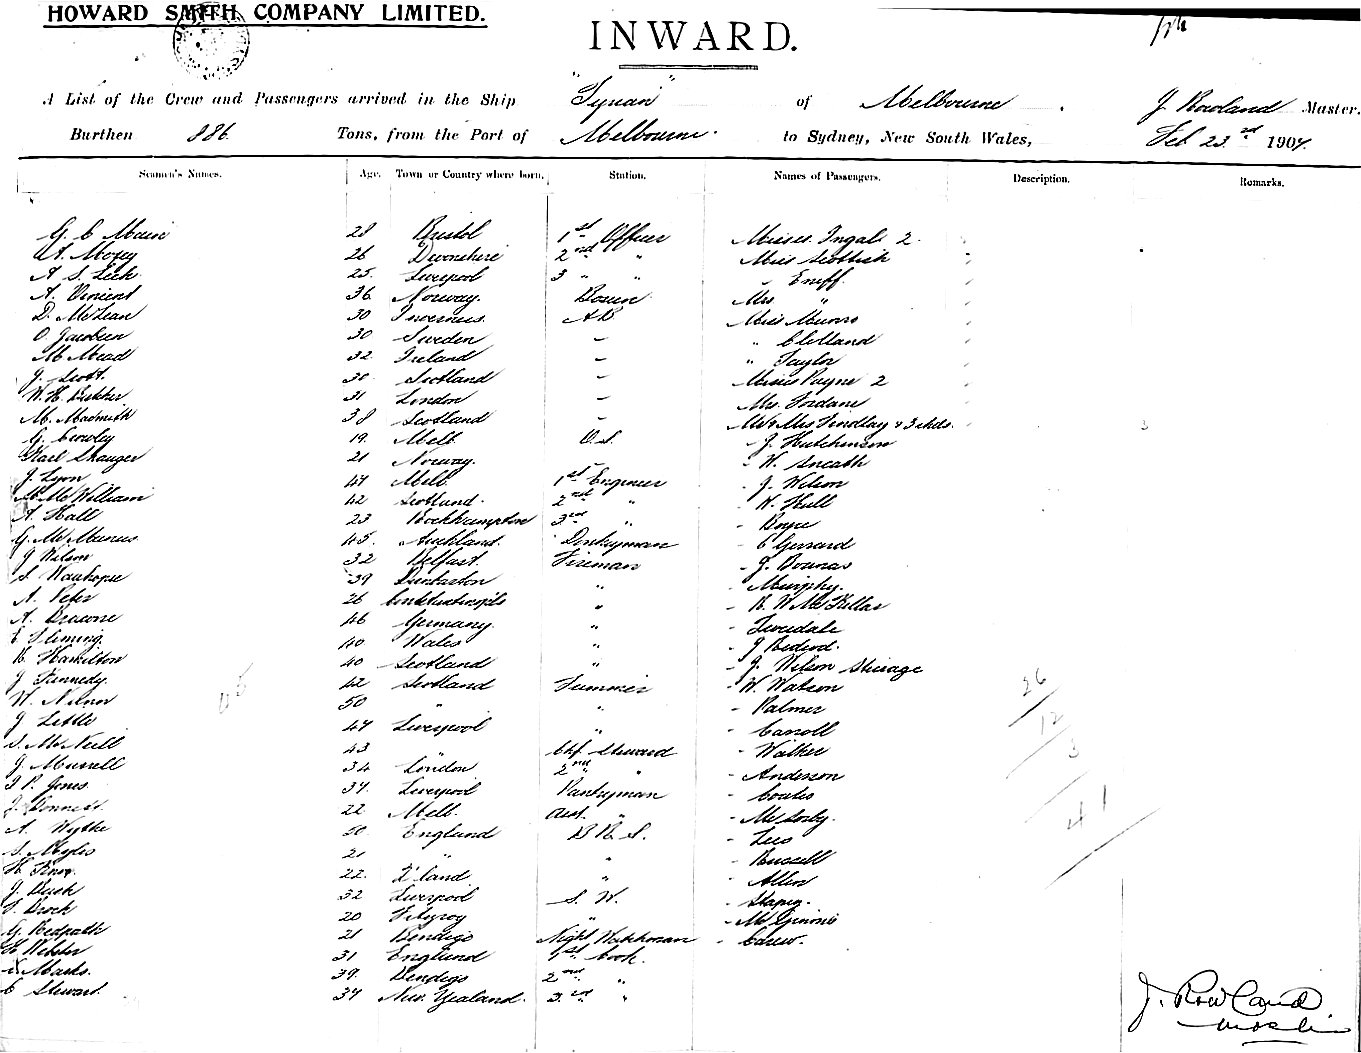 HOWARD SMITH COMPANY LIMITED.
INWARD.
A List of the Crew and Passengers arrived in the Ship "Tyrian" of Melbourne. J Rowland Master.
Burthen 886 Tons, from the Port of Melbourne. to Sydney, New South Wales, Feb 23rd 1907.
Seamen's Names. Age. Town or Country where born. Station. Names of Passengers. Description. Remarks.
G. C Main 28 Bristol 1st Officer Misses Ingali 2
A. Moxey 26 Devonshire 2nd " Miss Scottish
A S. Leek 25. Liverpool 3 " " " Eneff.
A. Vincent 36 Norway. Bosun Mrs "
D. McLean 30 Inverness AB Miss Munro
O. Jacobsen 30 Sweden - " Clelland
M Mead 32 Ireland - " Taylor
J. Scott. 30 Scotland - Misses Payne 2
W. H. 31 London - Mrs. Jordane
M. 38 Scotland - Mr & Mrs Findlay & 3 chds. 3
G. Crowley 19. Melb. O.S. - J. Hutchinson
Karl 21 Norway. - - W. Sneath
J. Lyon 47 Melb. 1st Engineer - J. Wilson
McWilliam 42 Scotland. 2nd " - W. Hull
A Hall 23 Rockhampton 3rd " - Royce
G. McManus 45. Auckland. Donkeyman - C Gerrard
J Wilson 32 Belfast. Fireman - J. Bounas
S. Wauhope 39 Dumbarton " - Murphy.
A. Peter 26 " - R. W McKellar
A. Browne 46 Germany. " - Tweedale
E Fleming. 40 Wales " - J
R. Hamilton 40 Scotland " - J. Wilson Steerage
J Kennedy. 42 Scotland Trimmer - W. Watson
W. 50 " " - Palmer
J Little 47 Liverpool " - Carroll
S. McNeill 43 " Chf. Steward - Walker
J. Murrell 34 London 2nd " - Anderson
P. Jones 37. Liverpool Pantryman - Coates
J. 22 Melb. Asst. " -
A. Wythe 50 England B R S. - Lees
S. Myles 21 " " - Russell
H. 22. I'land " - Allen
J. Bush 32 Liverpool S. W. -
Brock 20 Fitzroy " -
G. Redpath 21 Bendigo Night Watchman - Carew.
Webster 31 England 1st Cook.
Marks. 39. Bendigo 2nd "
C Stewart. 37 New Zealand. 3rd "
26
12
3
41
J. Rowland
Master